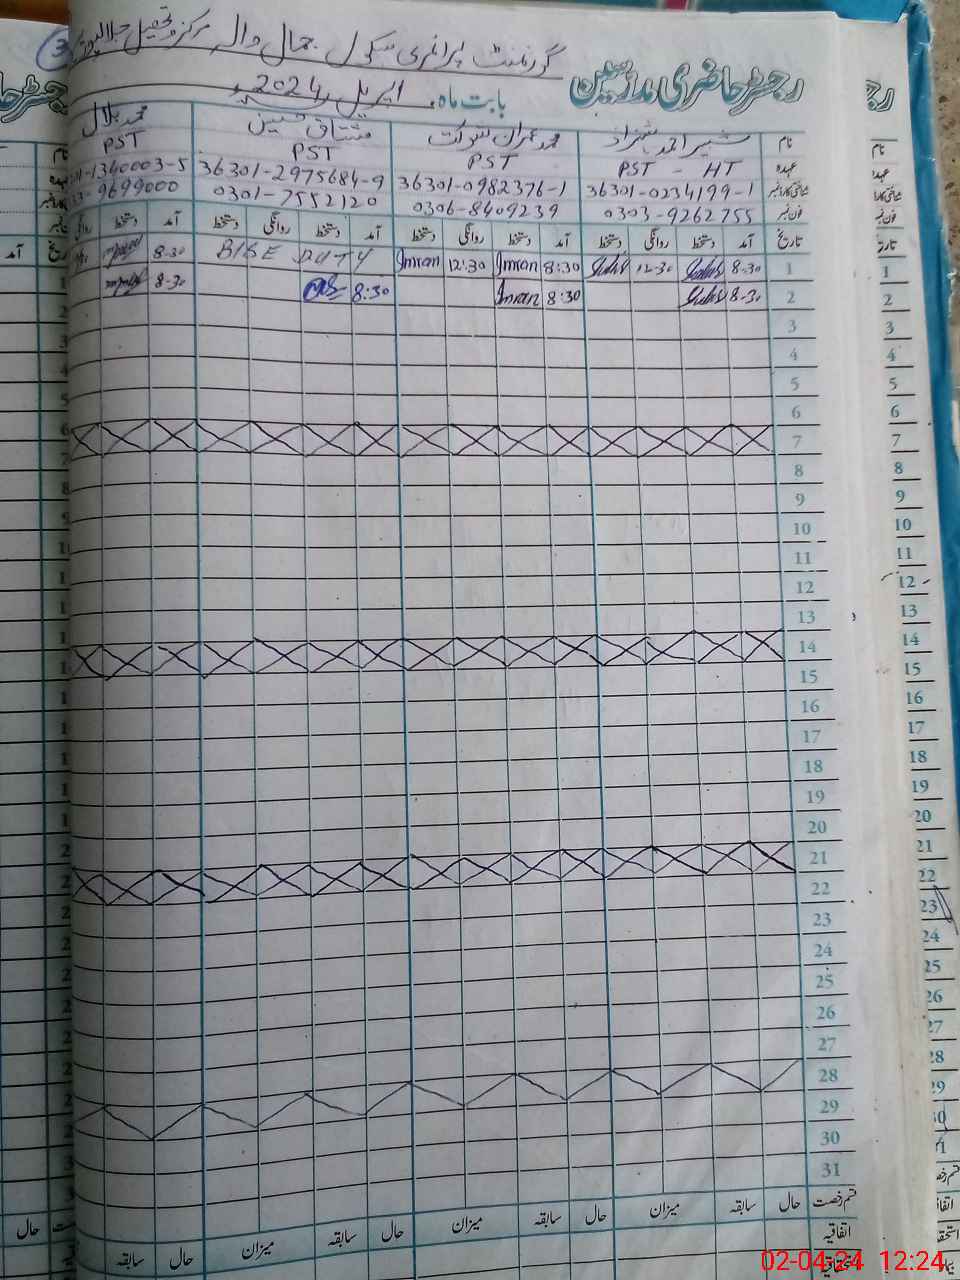 گورنمنٹ پرائمری سکول جمال والہ مرکز و تحصیل جلالپور
رجسٹر حاضری مدرسین
بابت ماہ اپریل 2024
نام شبیر احمد شہزاد محمد عمران شوکت مشتاق حسین محمد بلال
عہدہ PST - HT PST PST PST
شناختی کارڈ نمبر 36301-0234199-1 36301-0982376-1 36301-2975684-9 1340003-5
فون نمبر 0303-9262755 0306-8409239 0301-7552120 9699000
تاریخ آمد دستخط روانگی دستخط آمد دستخط روانگی دستخط آمد دستخط روانگی دستخط آمد دستخط روانگی
1 8-30 12-30 8:30 Imran 12:30 Imran BISE DUTY 8-30
2 8-30 8:30 Imran 8:30 8-30
3
4
5
6
7
8
9
10
11
12
13
14
15
16
17
18
19
20
21
22
23
24
25
26
27
28
29
30
31
قسم رخصت حال سابقہ میزان حال سابقہ میزان حال سابقہ میزان حال سابقہ
اتفاقیہ
02-04-24 12:24